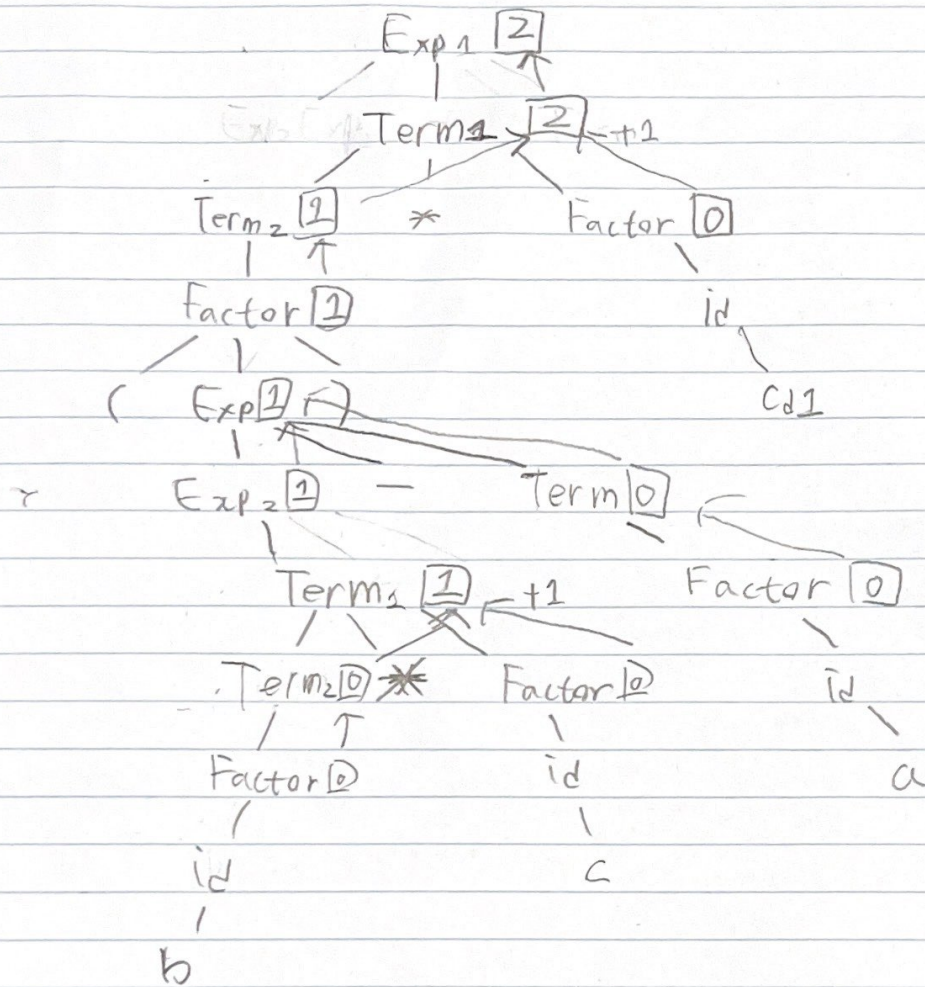 Exp1 2
Term1 2 +1
Term2 1 * Factor 0
Factor 1 id
( Exp 1 ) Cd1
Exp2 1 - Term 0
Term1 1 +1 Factor 0
Term2 0 * Factor 0 id
Factor 0 id a
id c
b